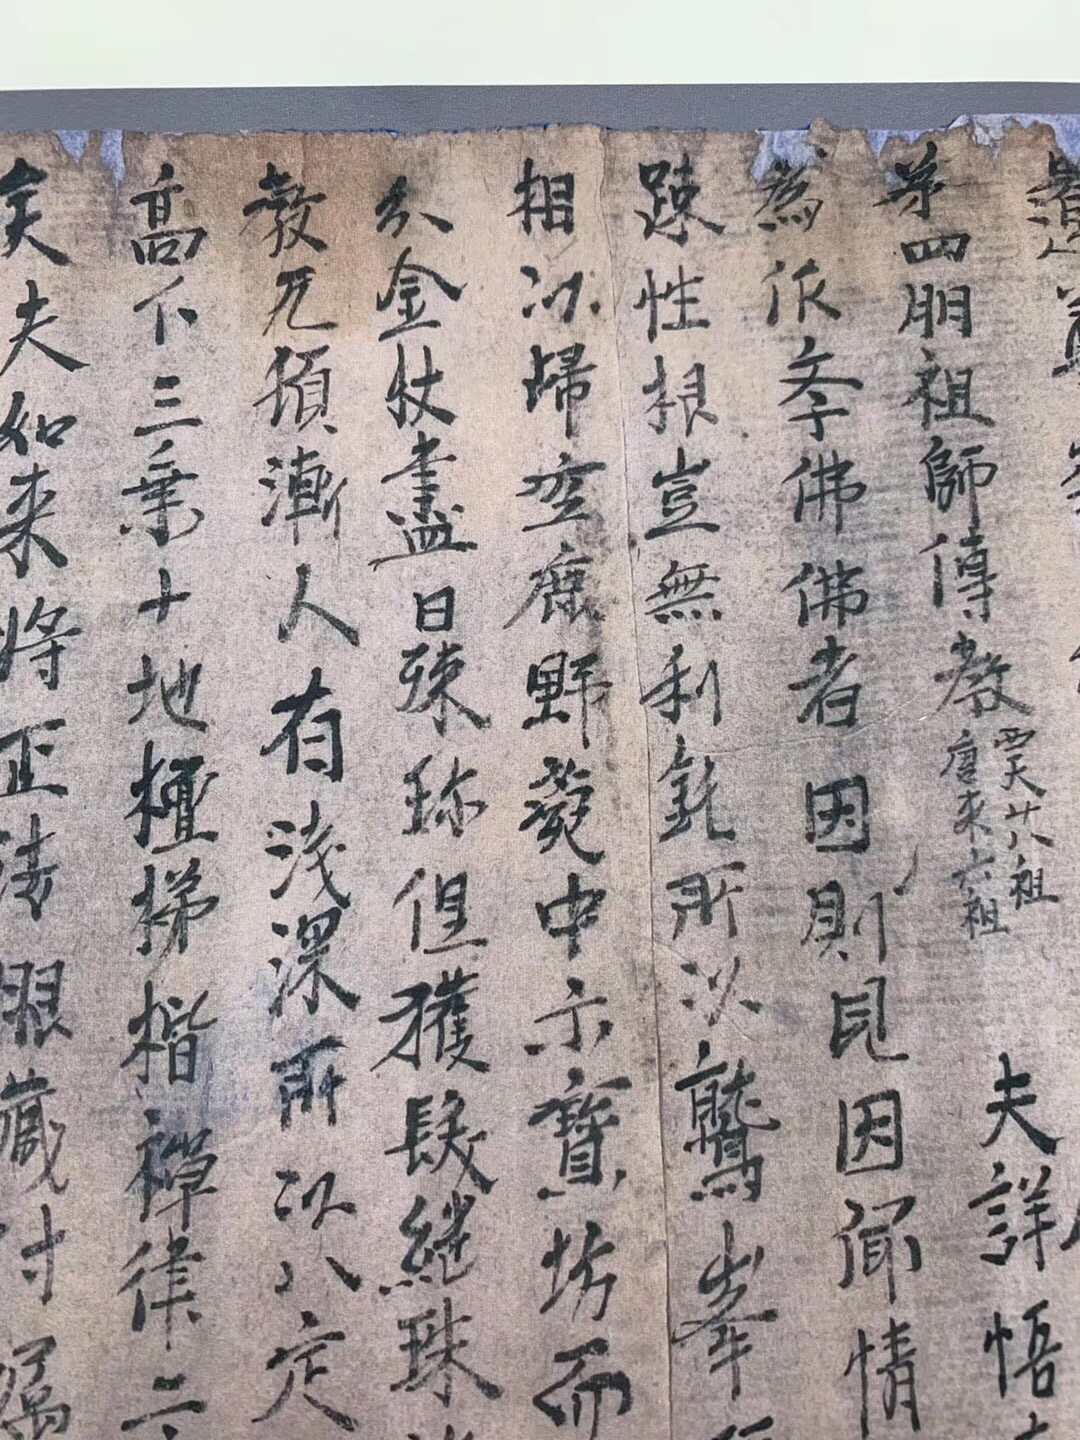 第四明祖師傳教 西天廿八祖 唐來六祖 夫詳悟
為依學佛佛者因則見因聞情
踈性根豈無利鈍所以鷲峯
相以歸空鹿野菀中示寶坊而
分金杖盡日殊珎但獲髮繞珠
教亢頓漸人有淺深所以八定
高下三乗十地極梯楷禪律二
矣夫如来將正法眼藏付囑